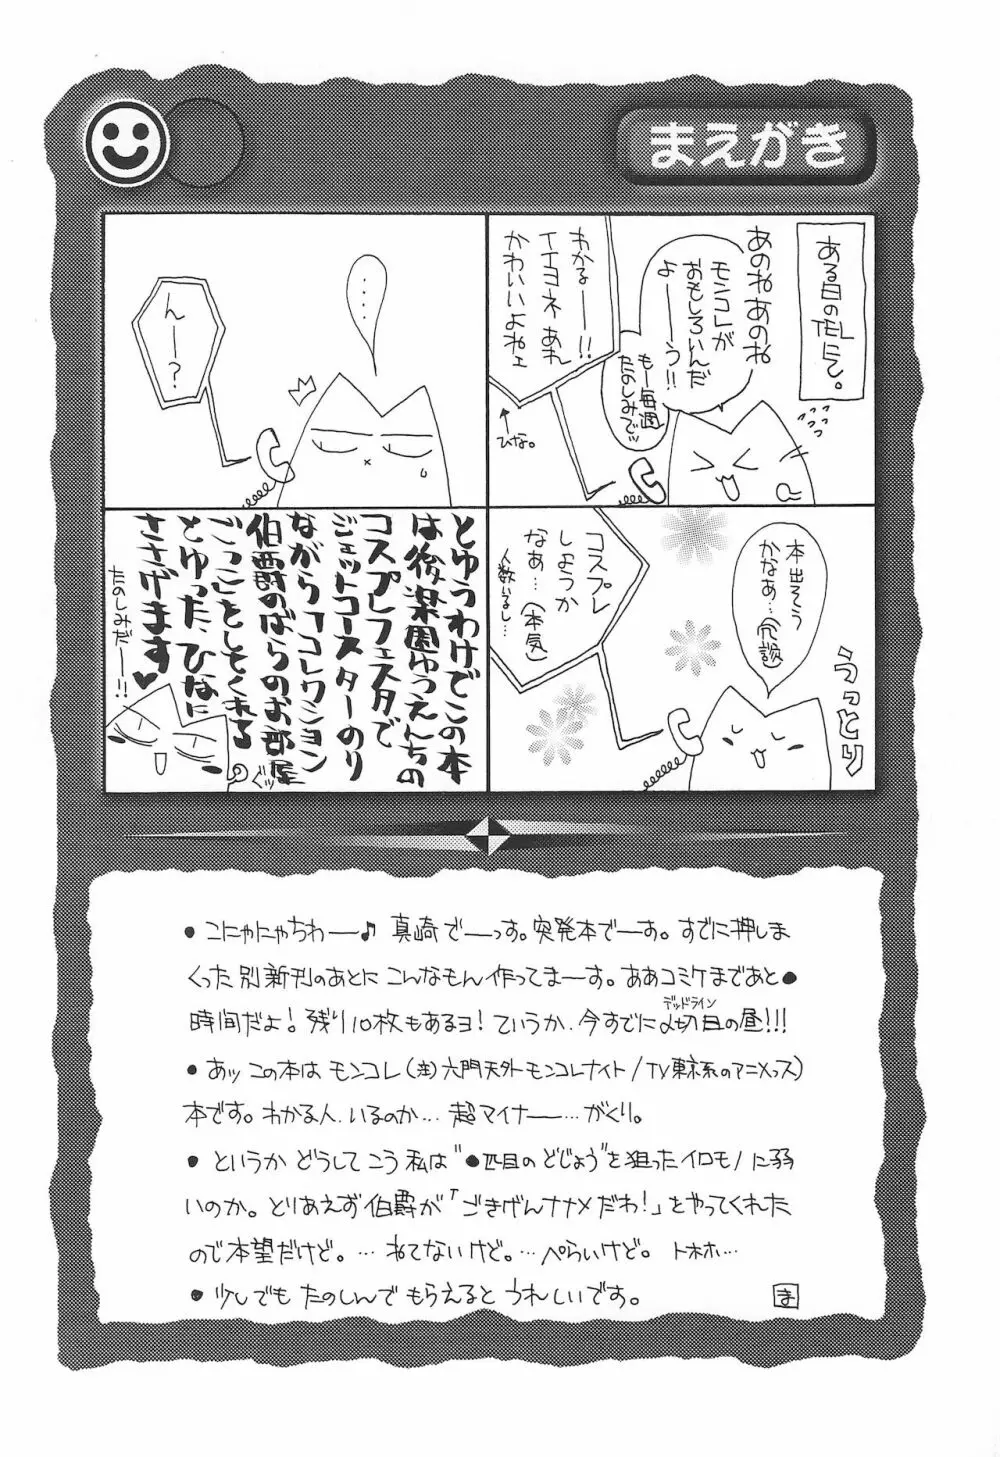 まえがき
ある日のTELにて。
あのねあのね
モンコレが
おもしろいんだ
よーーう!!
もー毎週
たのしみでッ
わかるーー!!
イイヨネあれ
かわいいよねェ
ひな。
本出そう
かなあ…(冗談)
うっとり
コスプレ
しようか
なあ…(本気)
人数いるし…
……
んー?
とゆうわけでこの本
は後楽園ゆうえんちの
コスプレフェスタで
ジェットコースターのり
ながら「コレクション
伯爵のばらのお部屋
ごっことしてくれる
とゆった、ひなに
ささげます♥
たのしみだーー!!
ぐッ
●こにゃにゃちわーー♪ 真崎でーっす。突発本でーす。すでに押しま
くった別新刊のあとにこんなもん作ってまーす。ああコミケまであと●
時間だよ!残り10枚もあるヨ!ていうか、今すでに〆切日の昼!!!
デッドライン
●あッ この本は モンコレ(注)六門天外モンコレナイト/TV東京系のアニメっス)
本です。わかる人、いるのか…超マイナー…がくり。
●というか どうしてこう私は"●匹目のどじょう"を狙ったイロモノに弱
いのか。とりあえず伯爵が「ごきげんナナメだわ!」をやってくれた
ので本望だけど。…ねてないけど。…ぺらいけど。 トホホ…
●少しでも たのしんで もらえると うれしいです。
ま